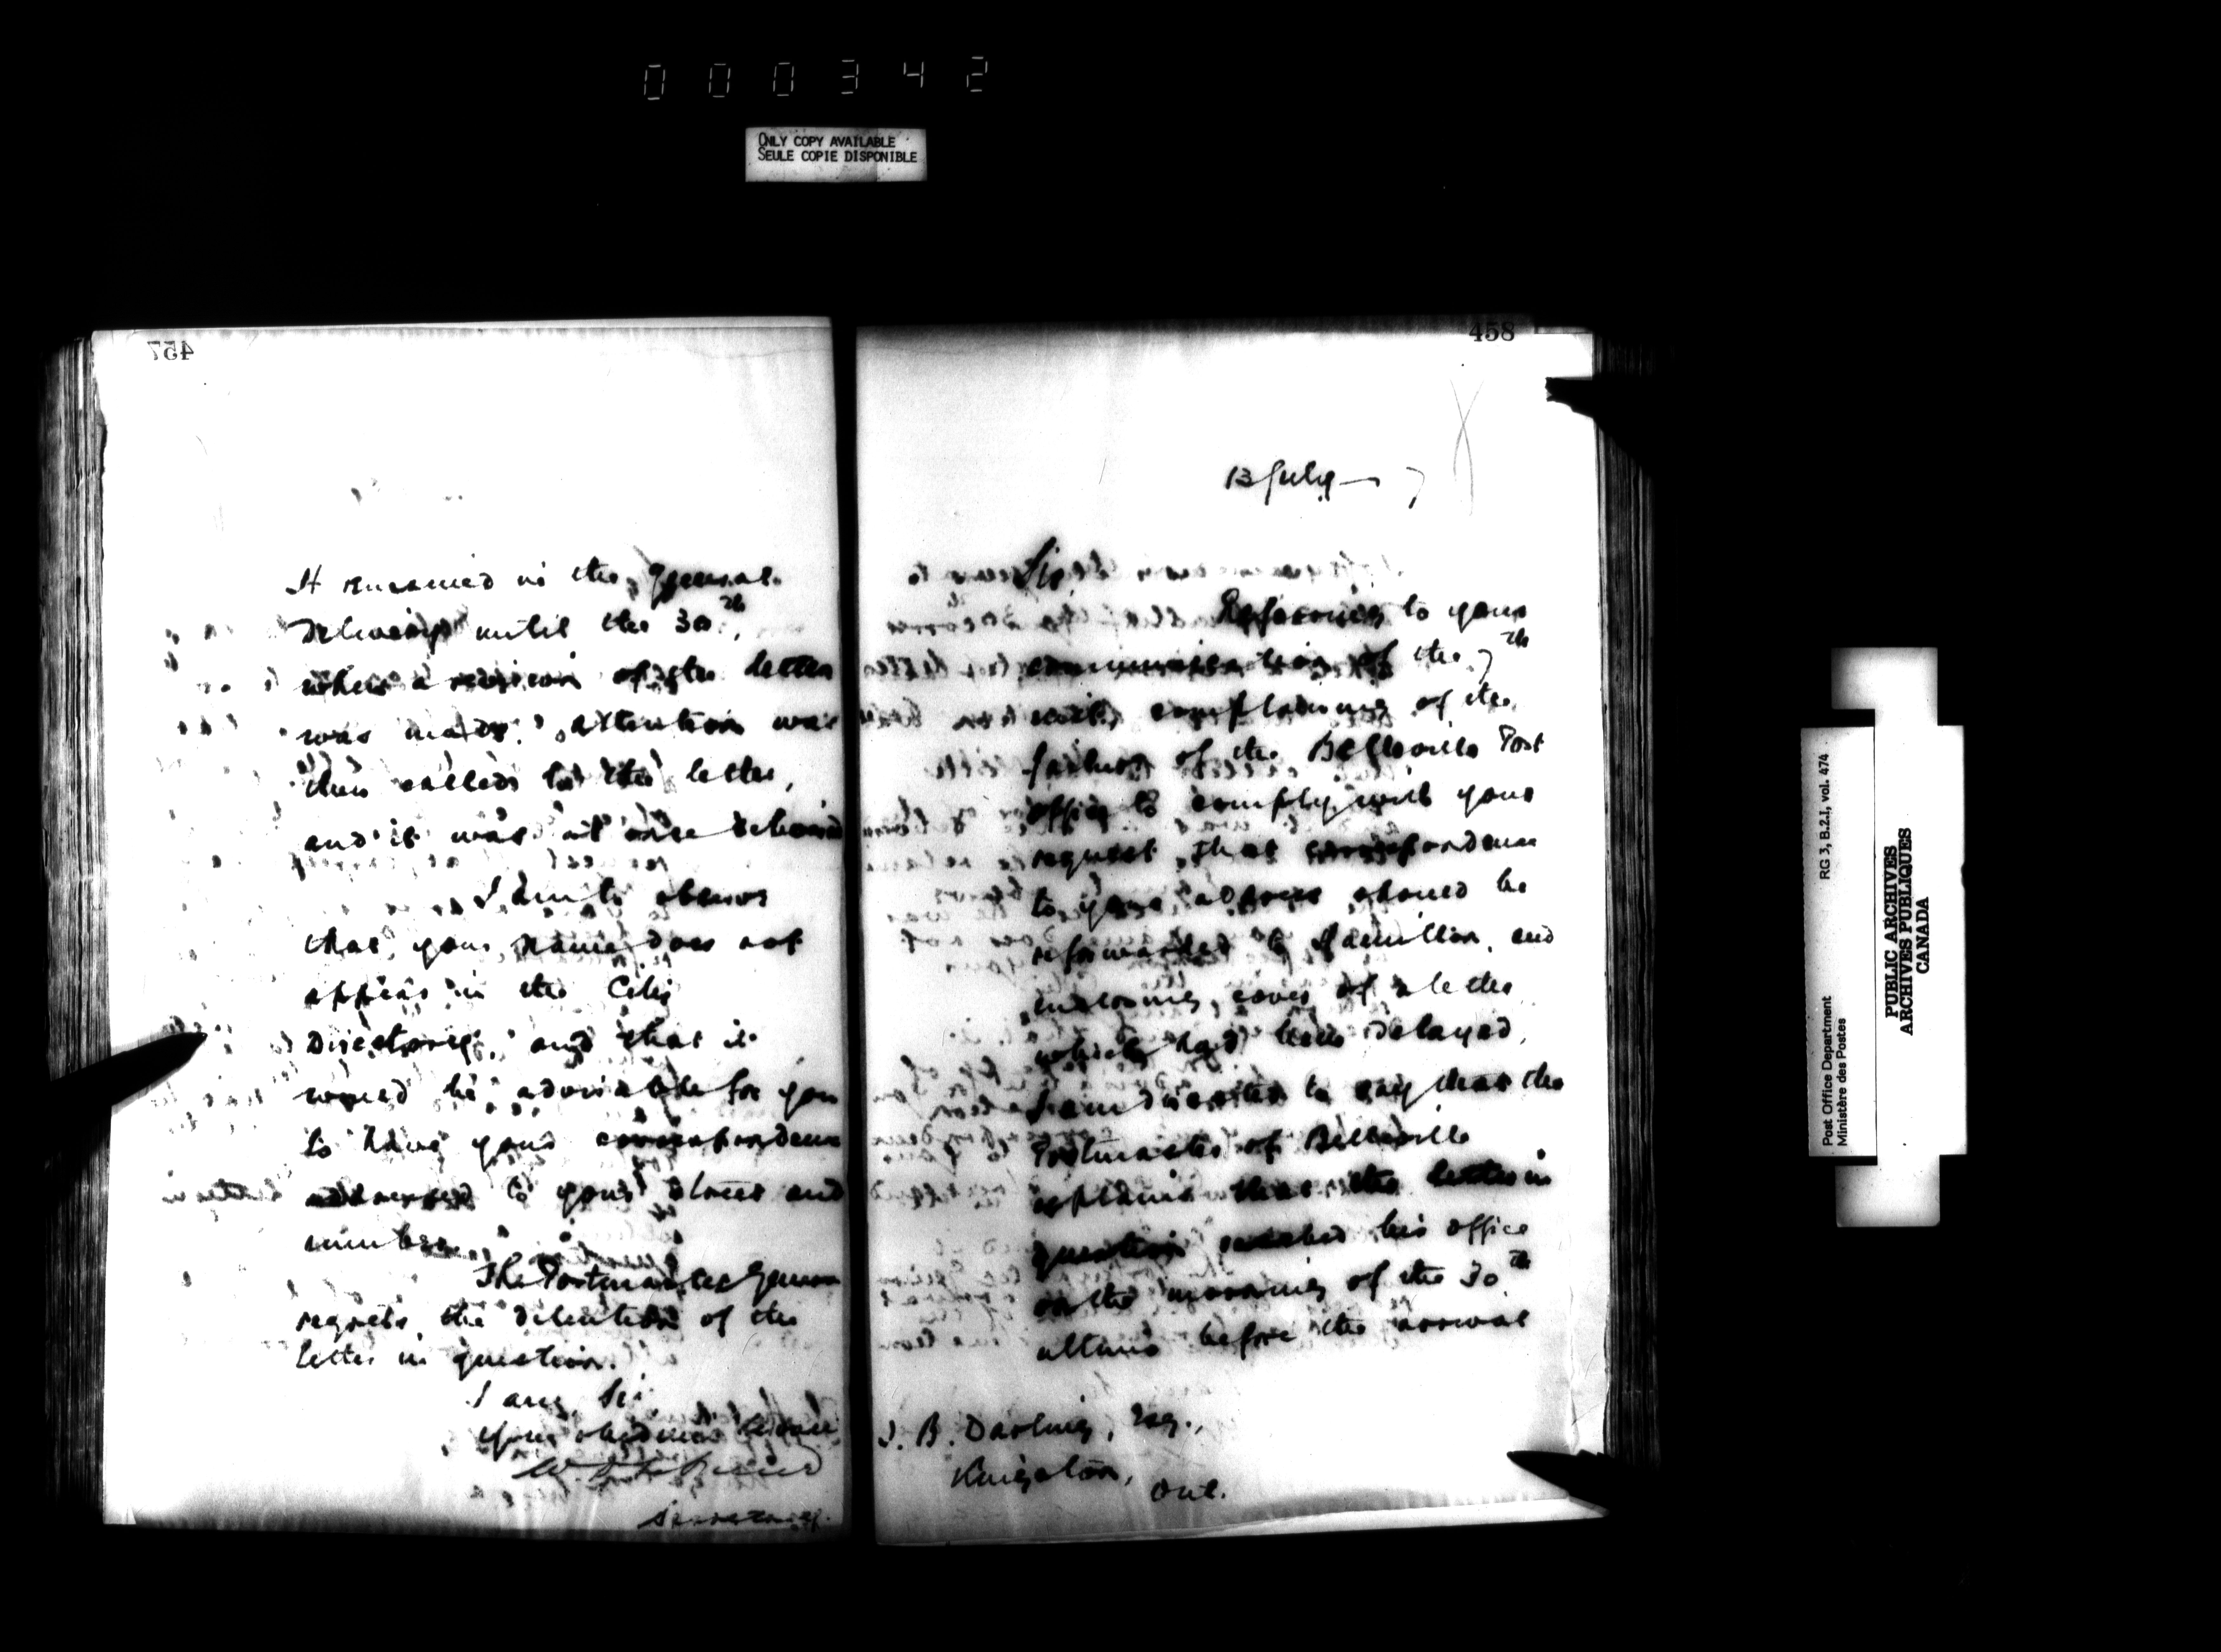 000342
ONLY COPY AVAILABLE
SEULE COPIE DISPONIBLE
457
It remained in the General
Delivery until the 30th,
when a revision of the letters
was made. Attention was
then called to the letter,
and it was at once delivered
I am to observe
that your name does not
appear in the City
Directory, and that it
would be advisable for you
to have your correspondence
addressed to your street and
number.
The Postmaster General
regrets the detention of the
letter in question.
I am, Sir,
Your obedient Servant
W.
Secretary.
458
13 July 7
Sir,
Referring to your
communication of the 7th
inst., complaining of the
failure of the Belleville Post
office to comply with your
request that correspondence
to your address should be
reforwarded to Hamilton, and
enclosing cover of a letter
which had been delayed,
I am directed to say that the
Postmaster of Belleville
explains that the letter in
question reached his office
on the morning of the 30th
ultimo before the arrival
J. B. Darling, Esq.,
Kingston,
Ont.
Post Office Department
Ministère des Postes
RG 3, B.2.I, vol. 474
PUBLIC ARCHIVES
ARCHIVES PUBLIQUES
CANADA